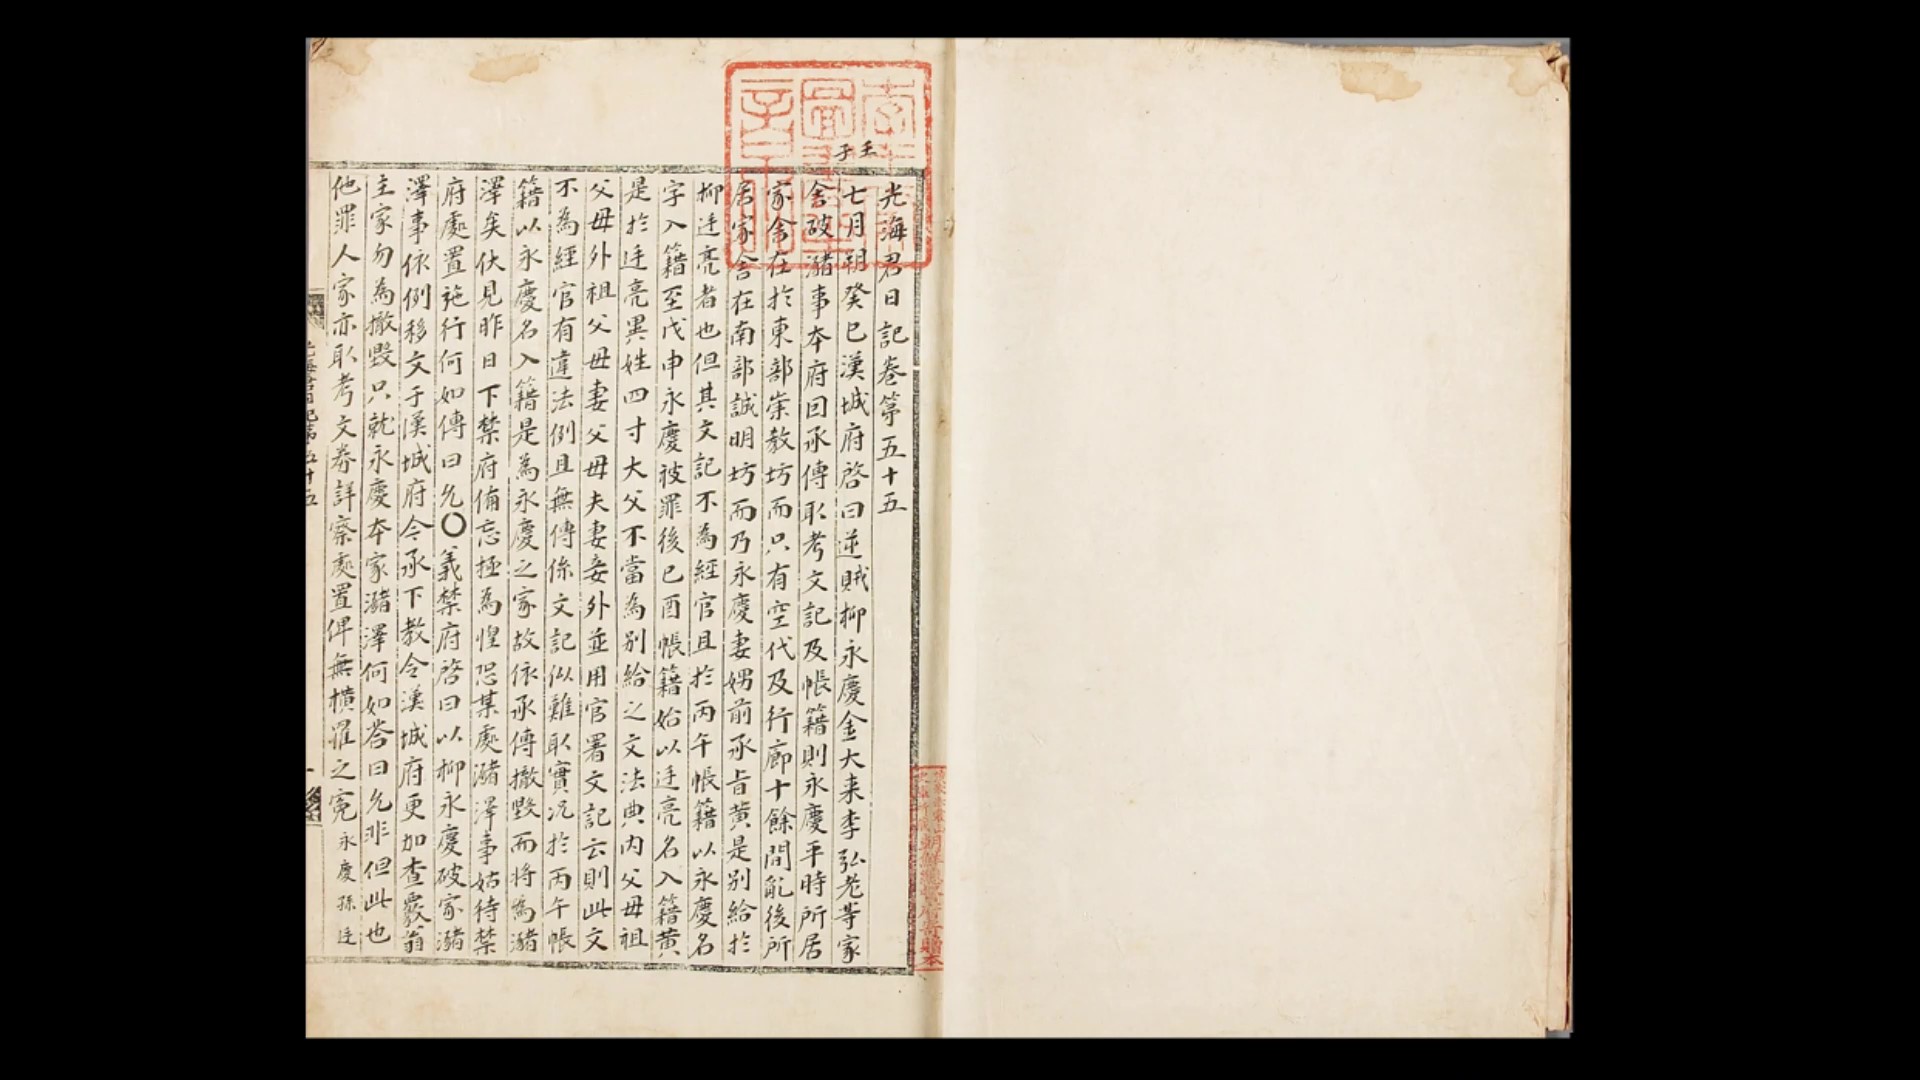 壬子
光海君日記卷第五十五
七月朔癸巳漢城府啓曰逆賊柳永慶金大来李弘老等家
舍破瀦事本府回承傳取考文記及帳籍則永慶平時所居
家舍在於東部崇教坊而只有空代及行廊十餘間能後所
居家舍在南部誠明坊而乃永慶妻娚前承旨黄是別給於
柳廷亮者也但其文記不為經官且於丙午帳籍以永慶名
字入籍至戊申永慶被罪後己酉帳籍始以廷亮名入籍黄
是於廷亮異姓四寸大父不當為別給之文法典内父母祖
父母外祖父母妻父母夫妻妾外並用官署文記云則此文
不為經官有違法例且無傳係文記似難取實况於丙午帳
籍以永慶名入籍是為永慶之家故依承傳撤毀而将為瀦
澤矣伏見昨日下禁府備忘極為惶恐某處瀦澤事姑待禁
府處置施行何如傳曰允○義禁府啓曰以柳永慶破家瀦
澤事依例移文于漢城府令承下教令漢城府更加查覈翁
主家勿為撤毀只就永慶本家瀦澤何如答曰允非但此也
他罪人家亦取考文券詳察處置俾無横罹之寃永慶孫廷
光海君日記第五十五
一
朝鮮總督府寄贈本